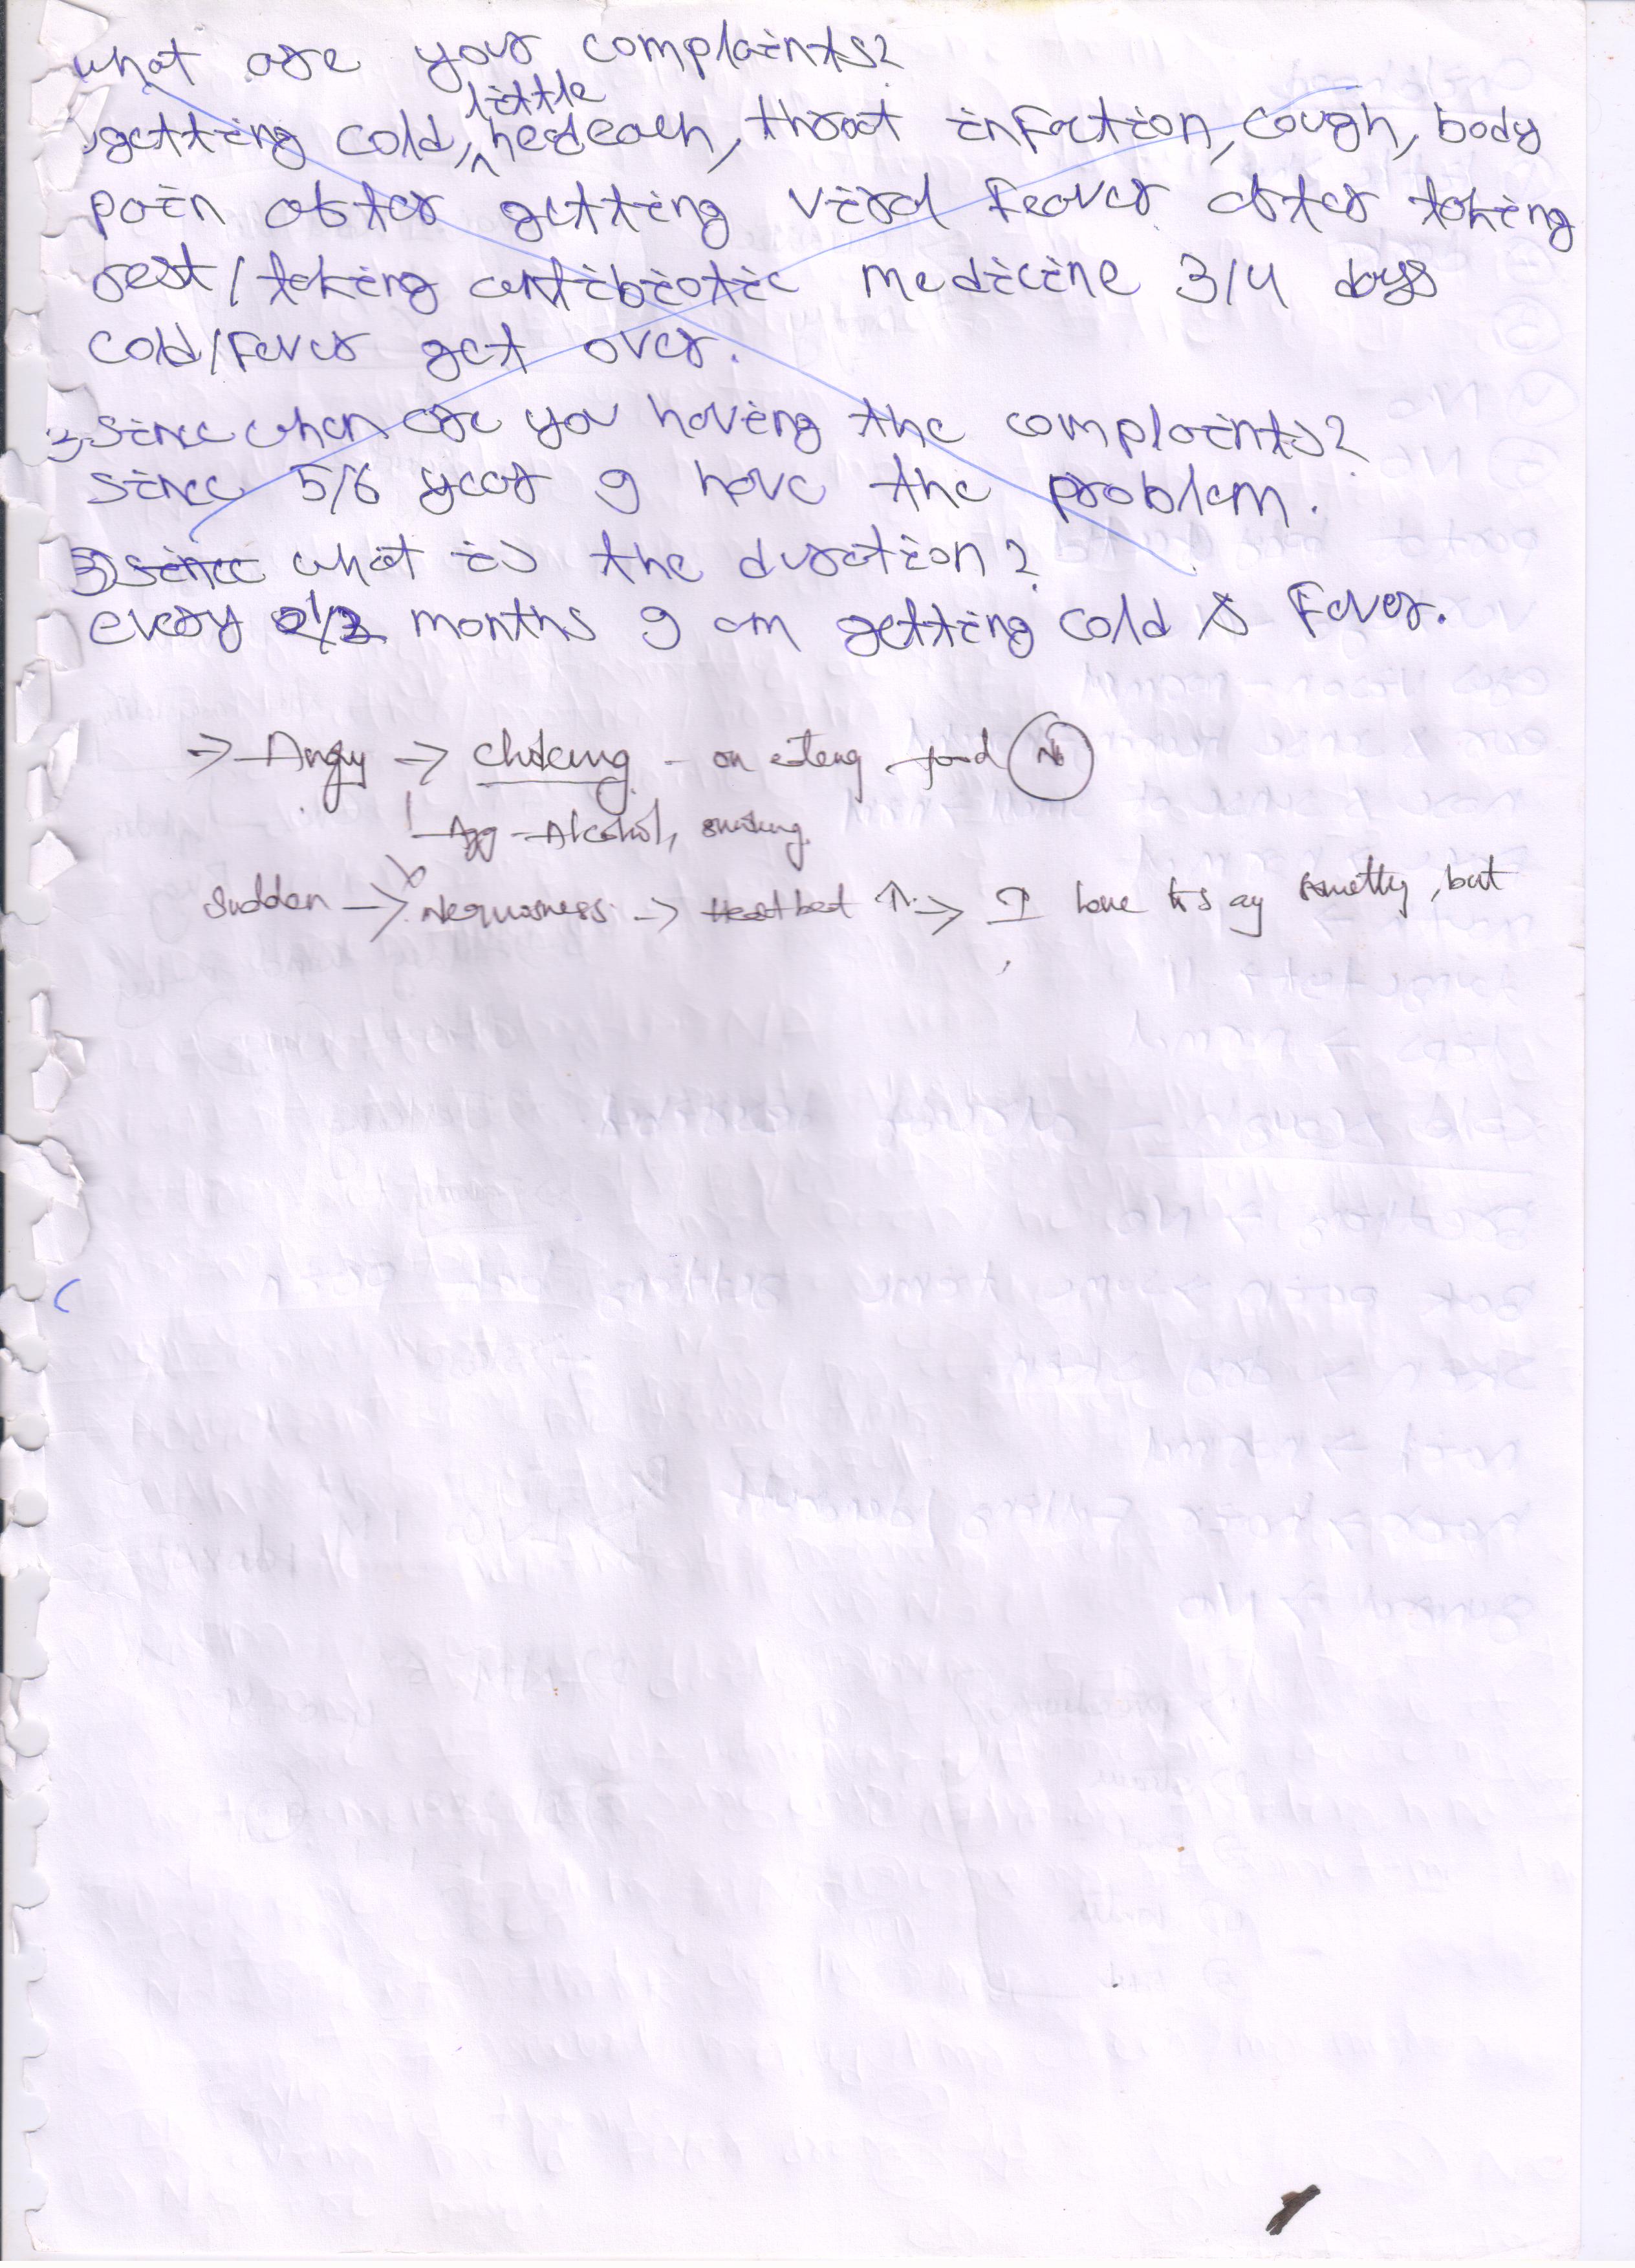 what are your complaints?
little
getting cold, hedeach, throat infection, cough, body
pain after getting viral feaver after taking
rest/taking antibiotic medicine 3/4 days
cold/fever get over.
2, since when are you having the complaints?
since 5/6 year I have the problem.
3) since what is the duration?
every 2/3 months I am getting cold & fever.
→ Angry → choking - on eating food No
Agg - Alcohol, smoking
Sudden → Nervousness → Heart beat ↑ → I have to say something, but